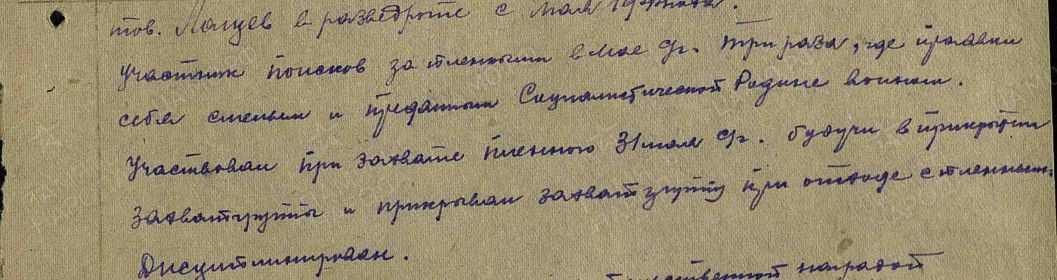 тов. Лапцев в разведроте с мая 194 года.
Участник поисков за пленными в мае с/г. три раза, где проявил
себя смелым и преданным Социалистической Родине воином.
Участвовал при захвате пленного 31 мая с/г. будучи в прикрытии
захватгруппы и прикрывал захватгруппу при отходе с пленным.
Дисциплинирован.
наградой